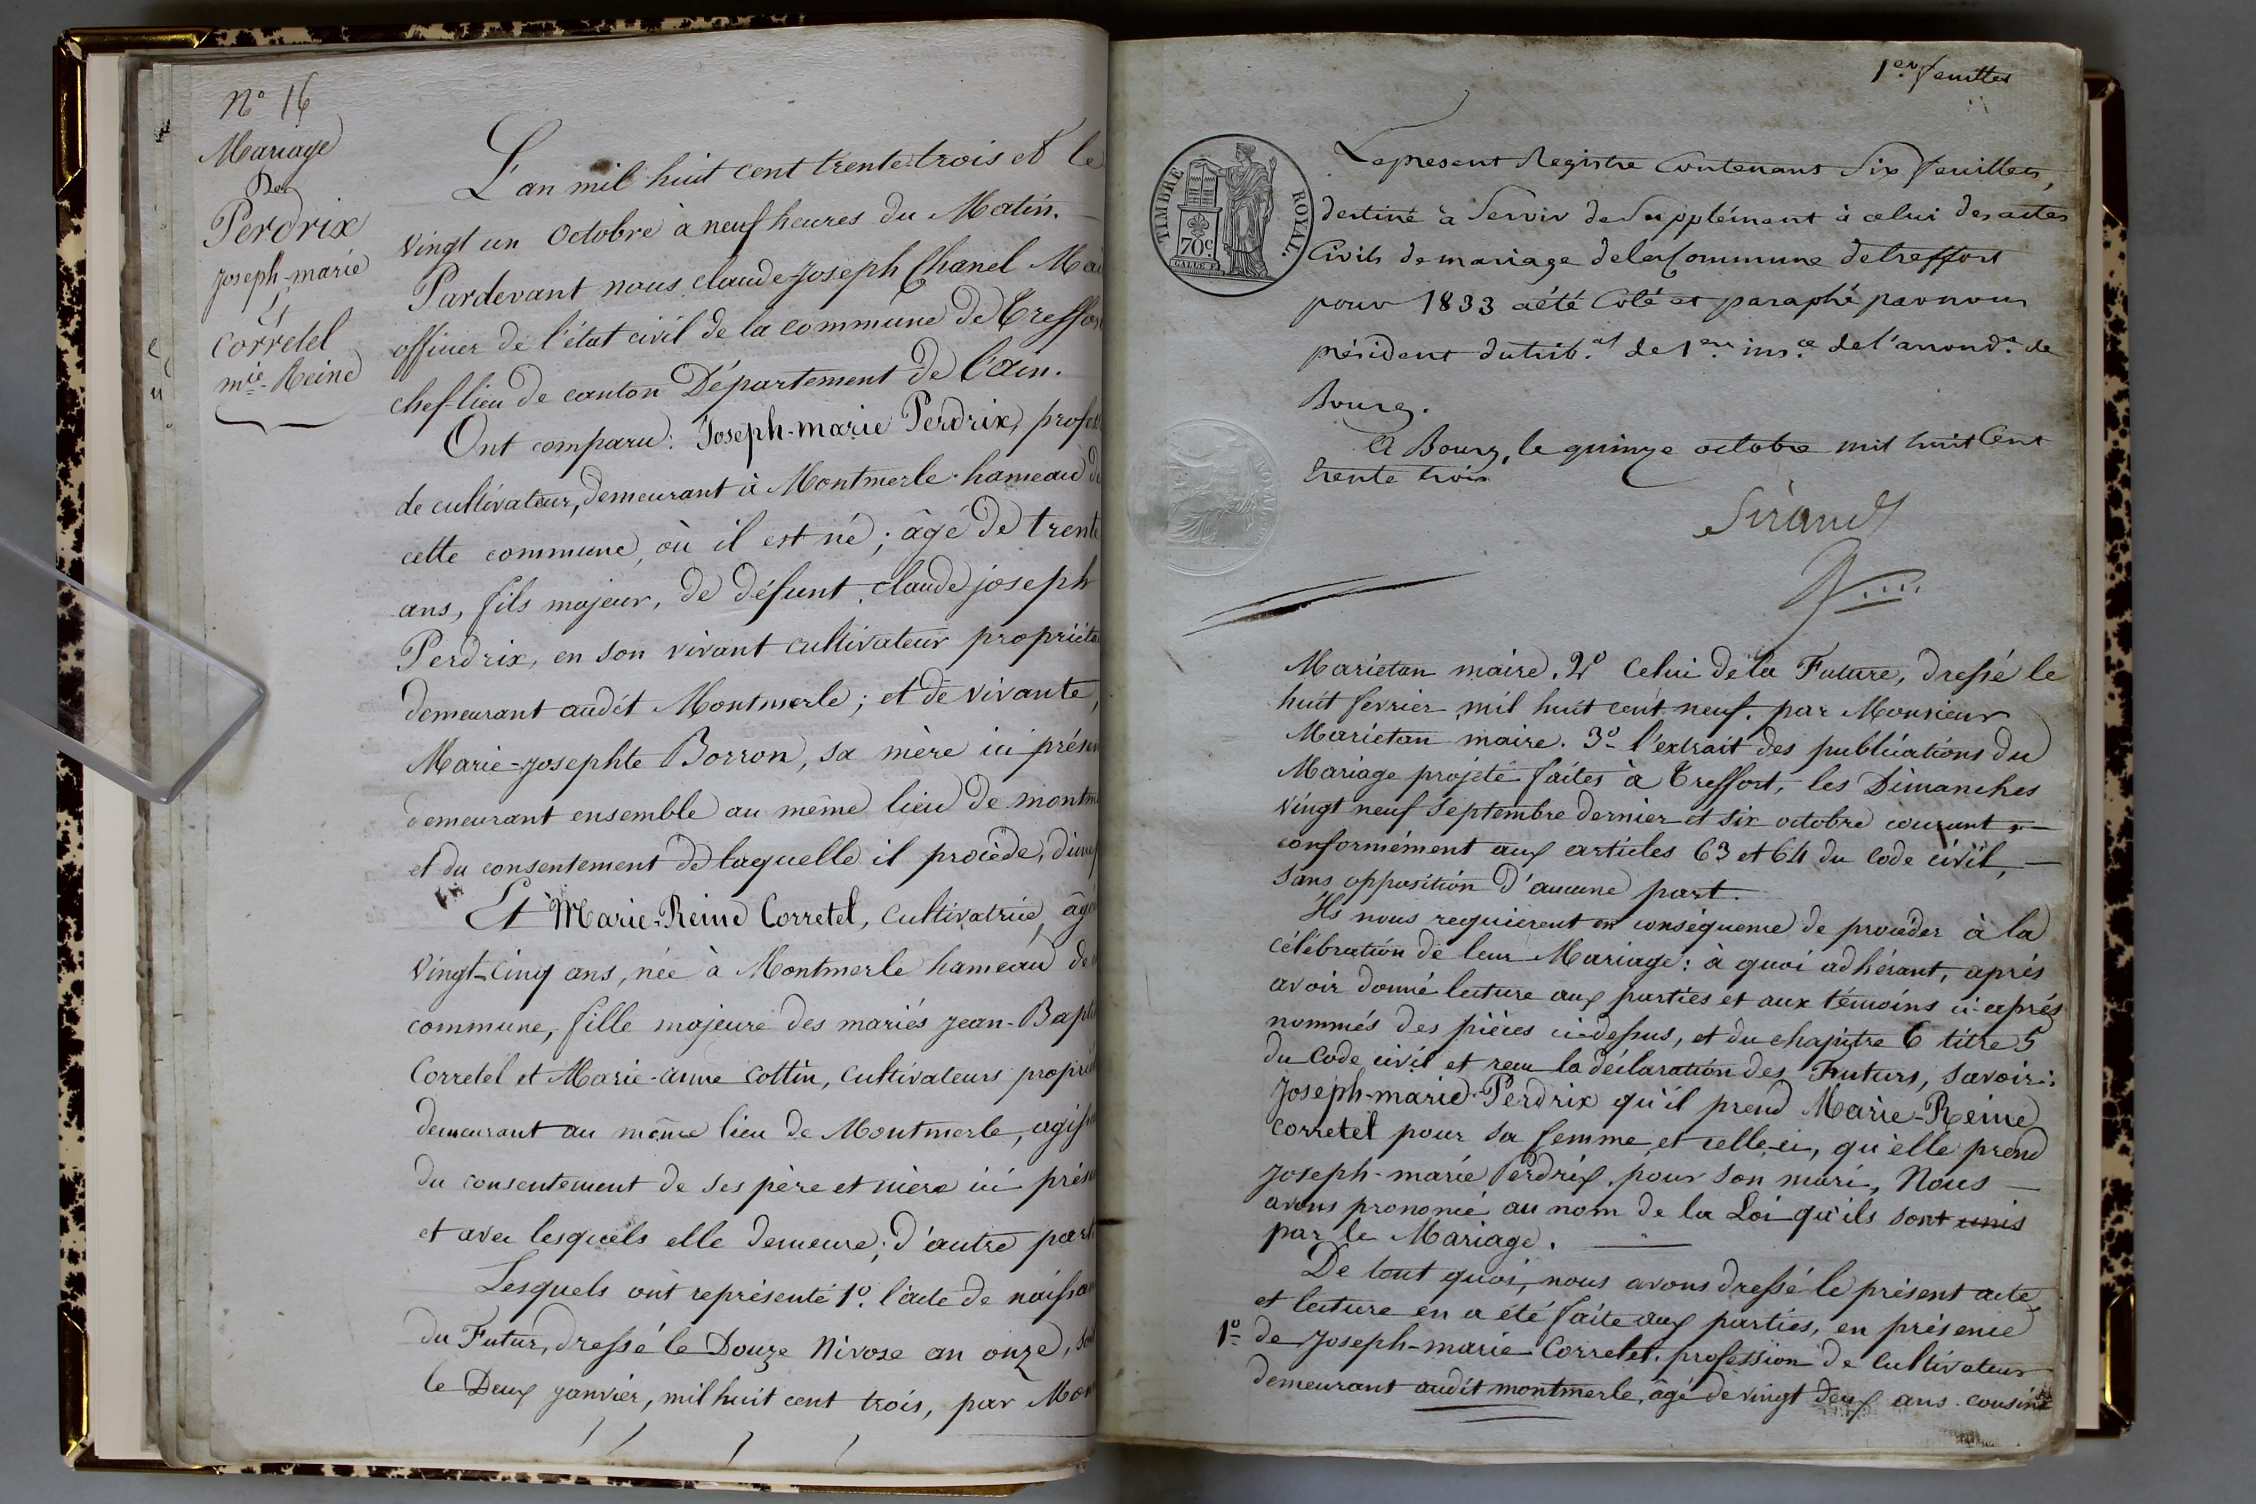 N° 16
Mariage
De
Perdrix
joseph-marie
Et
Corretel
mie-Reine
L'an mil huit cent trente trois et le
vingt un Octobre à neuf heures du Matin.
Pardevant nous claude-joseph Chanel Mai
officier de l'état civil de la commune de Treffort
chef-lieu de canton Département de l'ain.
Ont comparu: Joseph-marie Perdrix, profess
de cultivateur, demeurant à Montmerle hameau de
cette commune, où il est né; âgé de trente
ans, fils majeur, de défunt claude joseph
Perdrix, en son vivant cultivateur propriéta
demeurant audit Montmerle; et de vivante,
Marie-josephte Borron, sa mère ici présen
demeurant ensemble au même lieu de montme
et du consentement de laquelle il procède, d'une p
Et Marie-Reine Corretel, Cultivatrice, âgé
Vingt-cinq ans, née à Montmerle hameau de
commune, fille majeure des mariés jean-Bapt
Corretel et Marie-anne Cottin, Cultivateurs propriét
demeurant au même lieu de Montmerle, agissa
du consentement de ses père et mère ici présen
et avec lesquels elle demeure; d'autre part.
Lesquels ont représenté 1° l'acte de naissan
du Futur, dressé le Douze Nivose an onze, soit
le Deux janvier, mil huit cent trois, par Mon
1er feuillet
TIMBRE ROYAL.
70c.
Le present Registre Contenant Six feuillets,
destiné à Servir de Supplément à celui des actes
Civils de mariage de la Commune de treffort
pour 1833 a été Coté et paraphé par nous
président du trib.al de 1ere ins.ce de l'arrond.t de
Bourg.
A Bourg, le quinze octobre mil huit Cent
trente trois
Sirand
Mariétan maire. 2° Celui de la Future, dressé le
huit fevrier mil huit cent neuf. par Monsieur
Mariétan maire. 3° l'extrait des publications du
Mariage projeté faites à Treffort, les Dimanches
vingt neuf Septembre dernier et six octobre courant
conformément aux articles 63 et 64 du Code civil,
Sans opposition d'aucune part.
Ils nous requierent en conséquence de procéder à la
célébration de leur Mariage: à quoi adhérant, après
avoir donné lecture aux parties et aux témoins ci-après
nommés des pièces ci-dessus, et du chapitre 6 titre 5
du Code civil et reçu la déclaration des Futurs, Savoir:
Joseph-marie Perdrix qu'il prend Marie-Reine
Corretel pour sa femme et celle-ci, qu'elle prend
Joseph-marie Perdrix, pour son mari, Nous
avons prononcé au nom de la Loi qu'ils sont unis
par le Mariage.
De tout quoi, nous avons dressé le présent acte,
et lecture en a été faite aux parties, en présence
1° de Joseph-marie Corretel, profession de Cultivateur
demeurant audit montmerle, âgé de vingt deux ans cousin